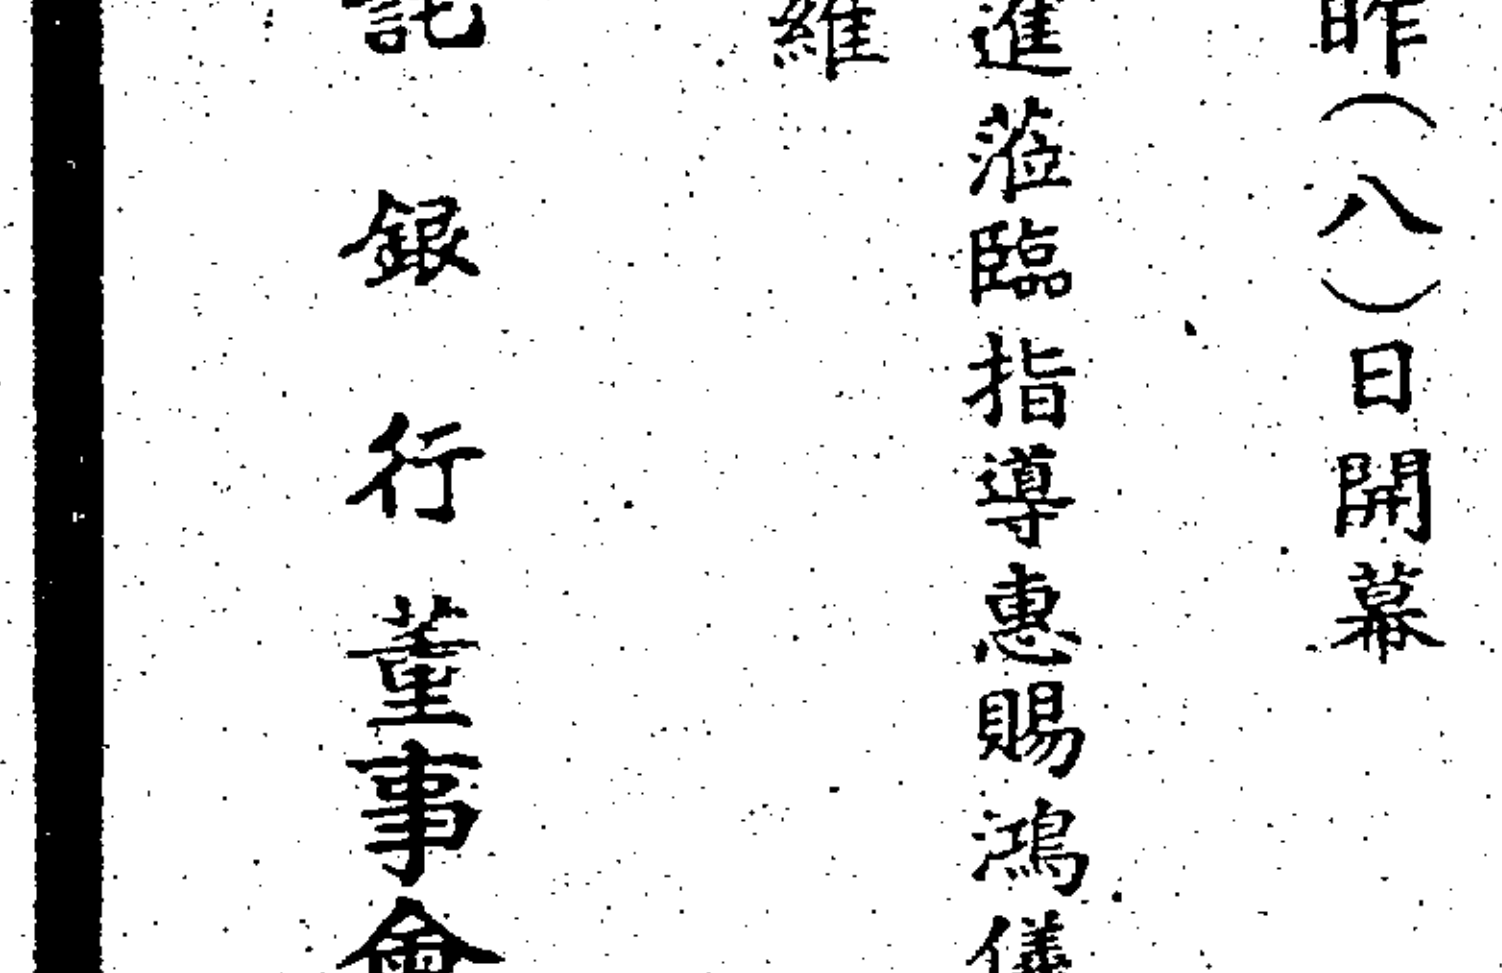 昨（八）日開幕
進蒞臨指導惠賜鴻儀
維
託銀行董事會